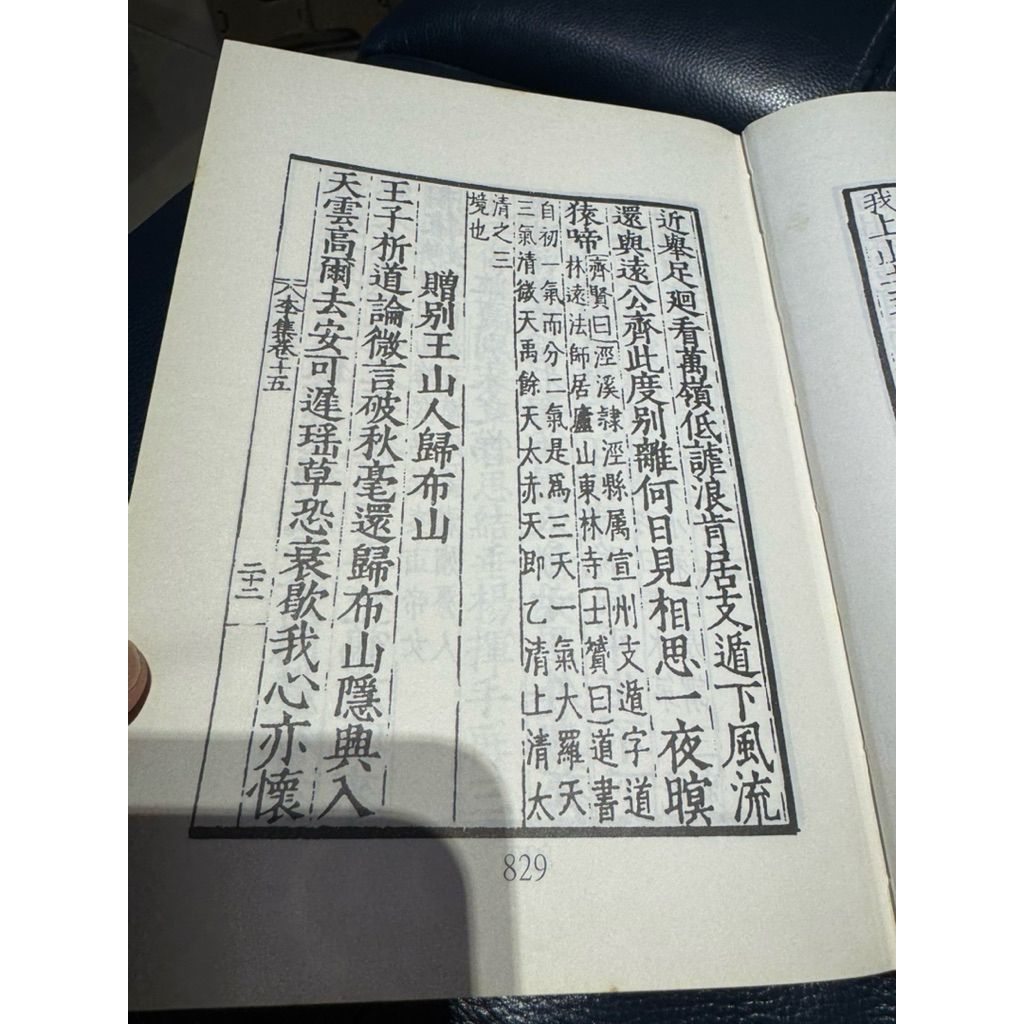 近舉足廻看萬嶺低謔浪肯居支遁下風流
還與遠公齊此度别離何日見相思一夜暝
猿啼
齊賢曰涇溪隷涇縣属宣州支遁字道
林遠法師居廬山東林寺士贇曰道書
自初一氣而分二氣是爲三天一氣大羅天
三氣清微天禹餘天太赤天即乙清上清太
清之三
境也
贈别王山人歸布山
王子析道論微言破秋毫還歸布山隱興入
天雲高爾去安可遲瑶草恐衰歇我心亦懷
李集卷十五
二十三
829
我上